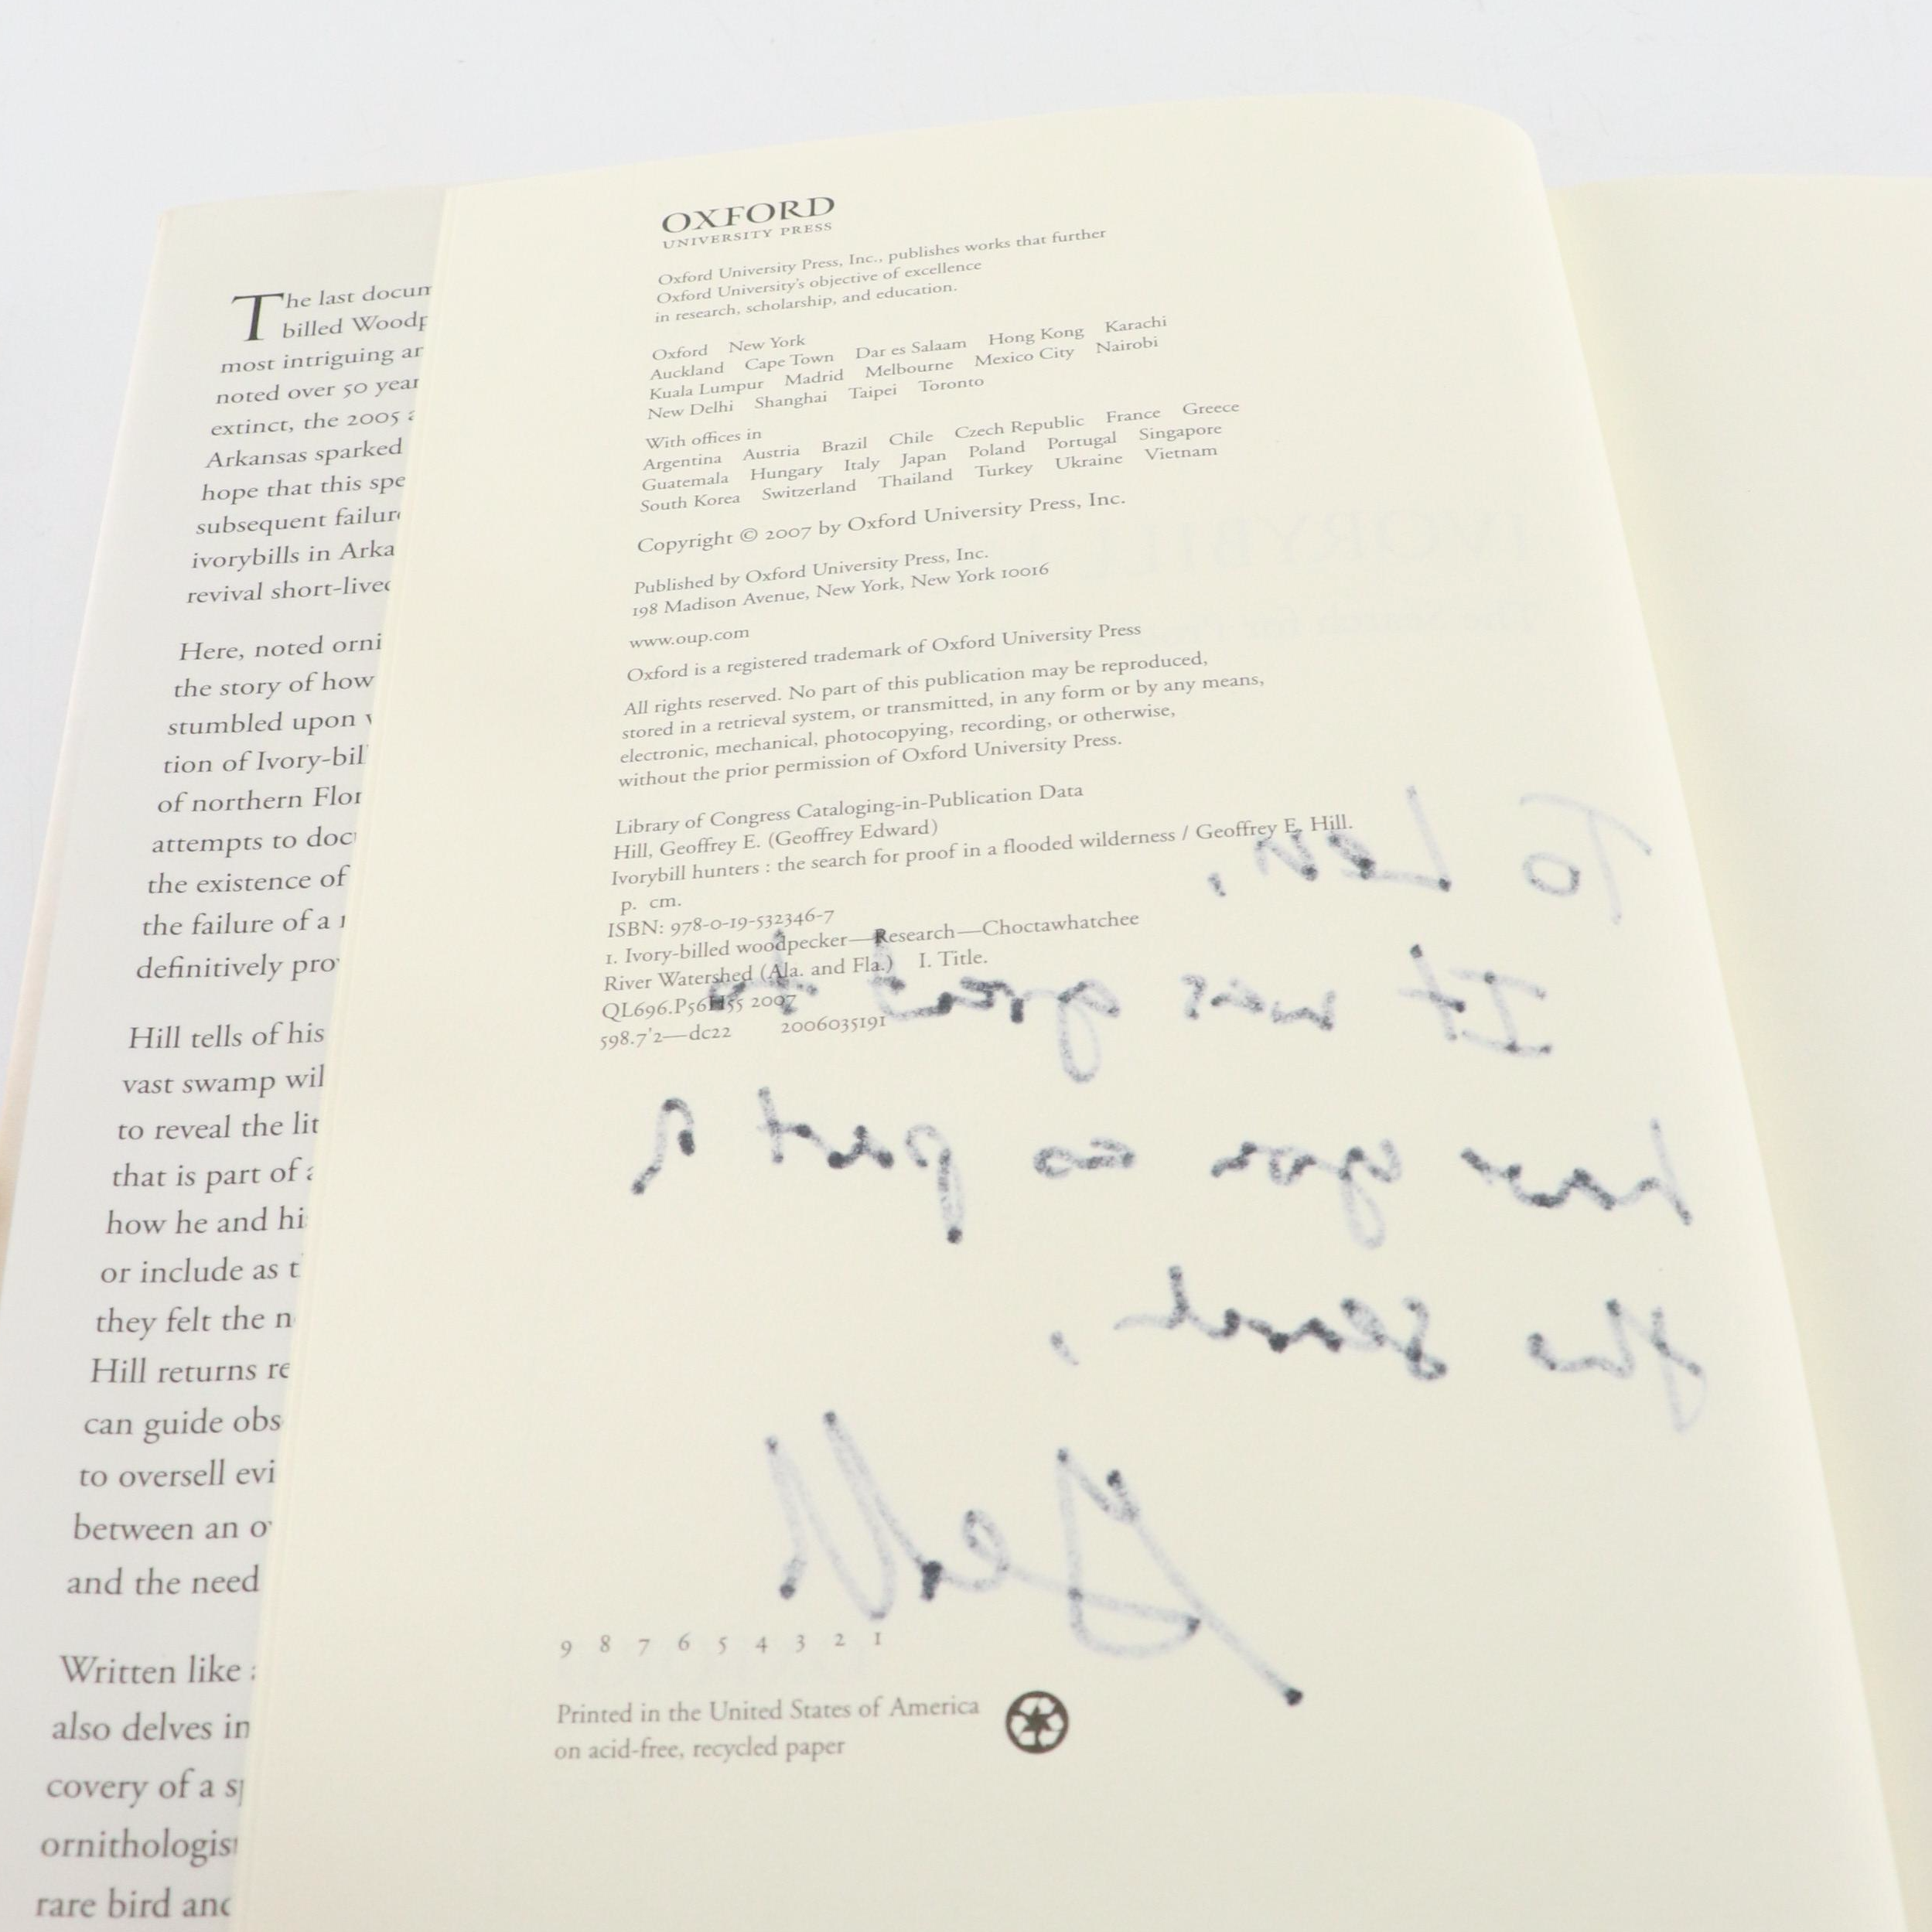 The last docum
billed Woodp
most intriguing an
noted over 50 year
extinct, the 2005 a
Arkansas sparked
hope that this spe
subsequent failure
ivorybills in Arka
revival short-lived
Here, noted orni
the story of how
stumbled upon
tion of Ivory-bil
of northern Flor
attempts to doc
the existence of
the failure of a
definitively pro
Hill tells of his
vast swamp wil
to reveal the lit
that is part of
how he and hi
or include as t
they felt the n
Hill returns re
can guide obs
to oversell evi
between an o
and the need
Written like
also delves in
covery of a sp
ornithologist
rare bird and
OXFORD
UNIVERSITY PRESS
Oxford University Press, Inc., publishes works that further
Oxford University's objective of excellence
in research, scholarship, and education.
Oxford New York
Auckland Cape Town Dar es Salaam Hong Kong Karachi
Kuala Lumpur Madrid Melbourne Mexico City Nairobi
New Delhi Shanghai Taipei Toronto
With offices in
Argentina Austria Brazil Chile Czech Republic France Greece
Guatemala Hungary Italy Japan Poland Portugal Singapore
South Korea Switzerland Thailand Turkey Ukraine Vietnam
Copyright © 2007 by Oxford University Press, Inc.
Published by Oxford University Press, Inc.
198 Madison Avenue, New York, New York 10016
www.oup.com
Oxford is a registered trademark of Oxford University Press
All rights reserved. No part of this publication may be reproduced,
stored in a retrieval system, or transmitted, in any form or by any means,
electronic, mechanical, photocopying, recording, or otherwise,
without the prior permission of Oxford University Press.
Library of Congress Cataloging-in-Publication Data
Hill, Geoffrey E. (Geoffrey Edward)
Ivorybill hunters : the search for proof in a flooded wilderness / Geoffrey E. Hill.
p. cm.
ISBN: 978-0-19-532346-7
1. Ivory-billed woodpecker—Research—Choctawhatchee
River Watershed (Ala. and Fla.) I. Title.
QL696.P56H55 2007
598.7'2—dc22 2006035191
To Lev,
It was great to
have you as part of
the search,
9 8 7 6 5 4 3 2 1
Printed in the United States of America
on acid-free, recycled paper